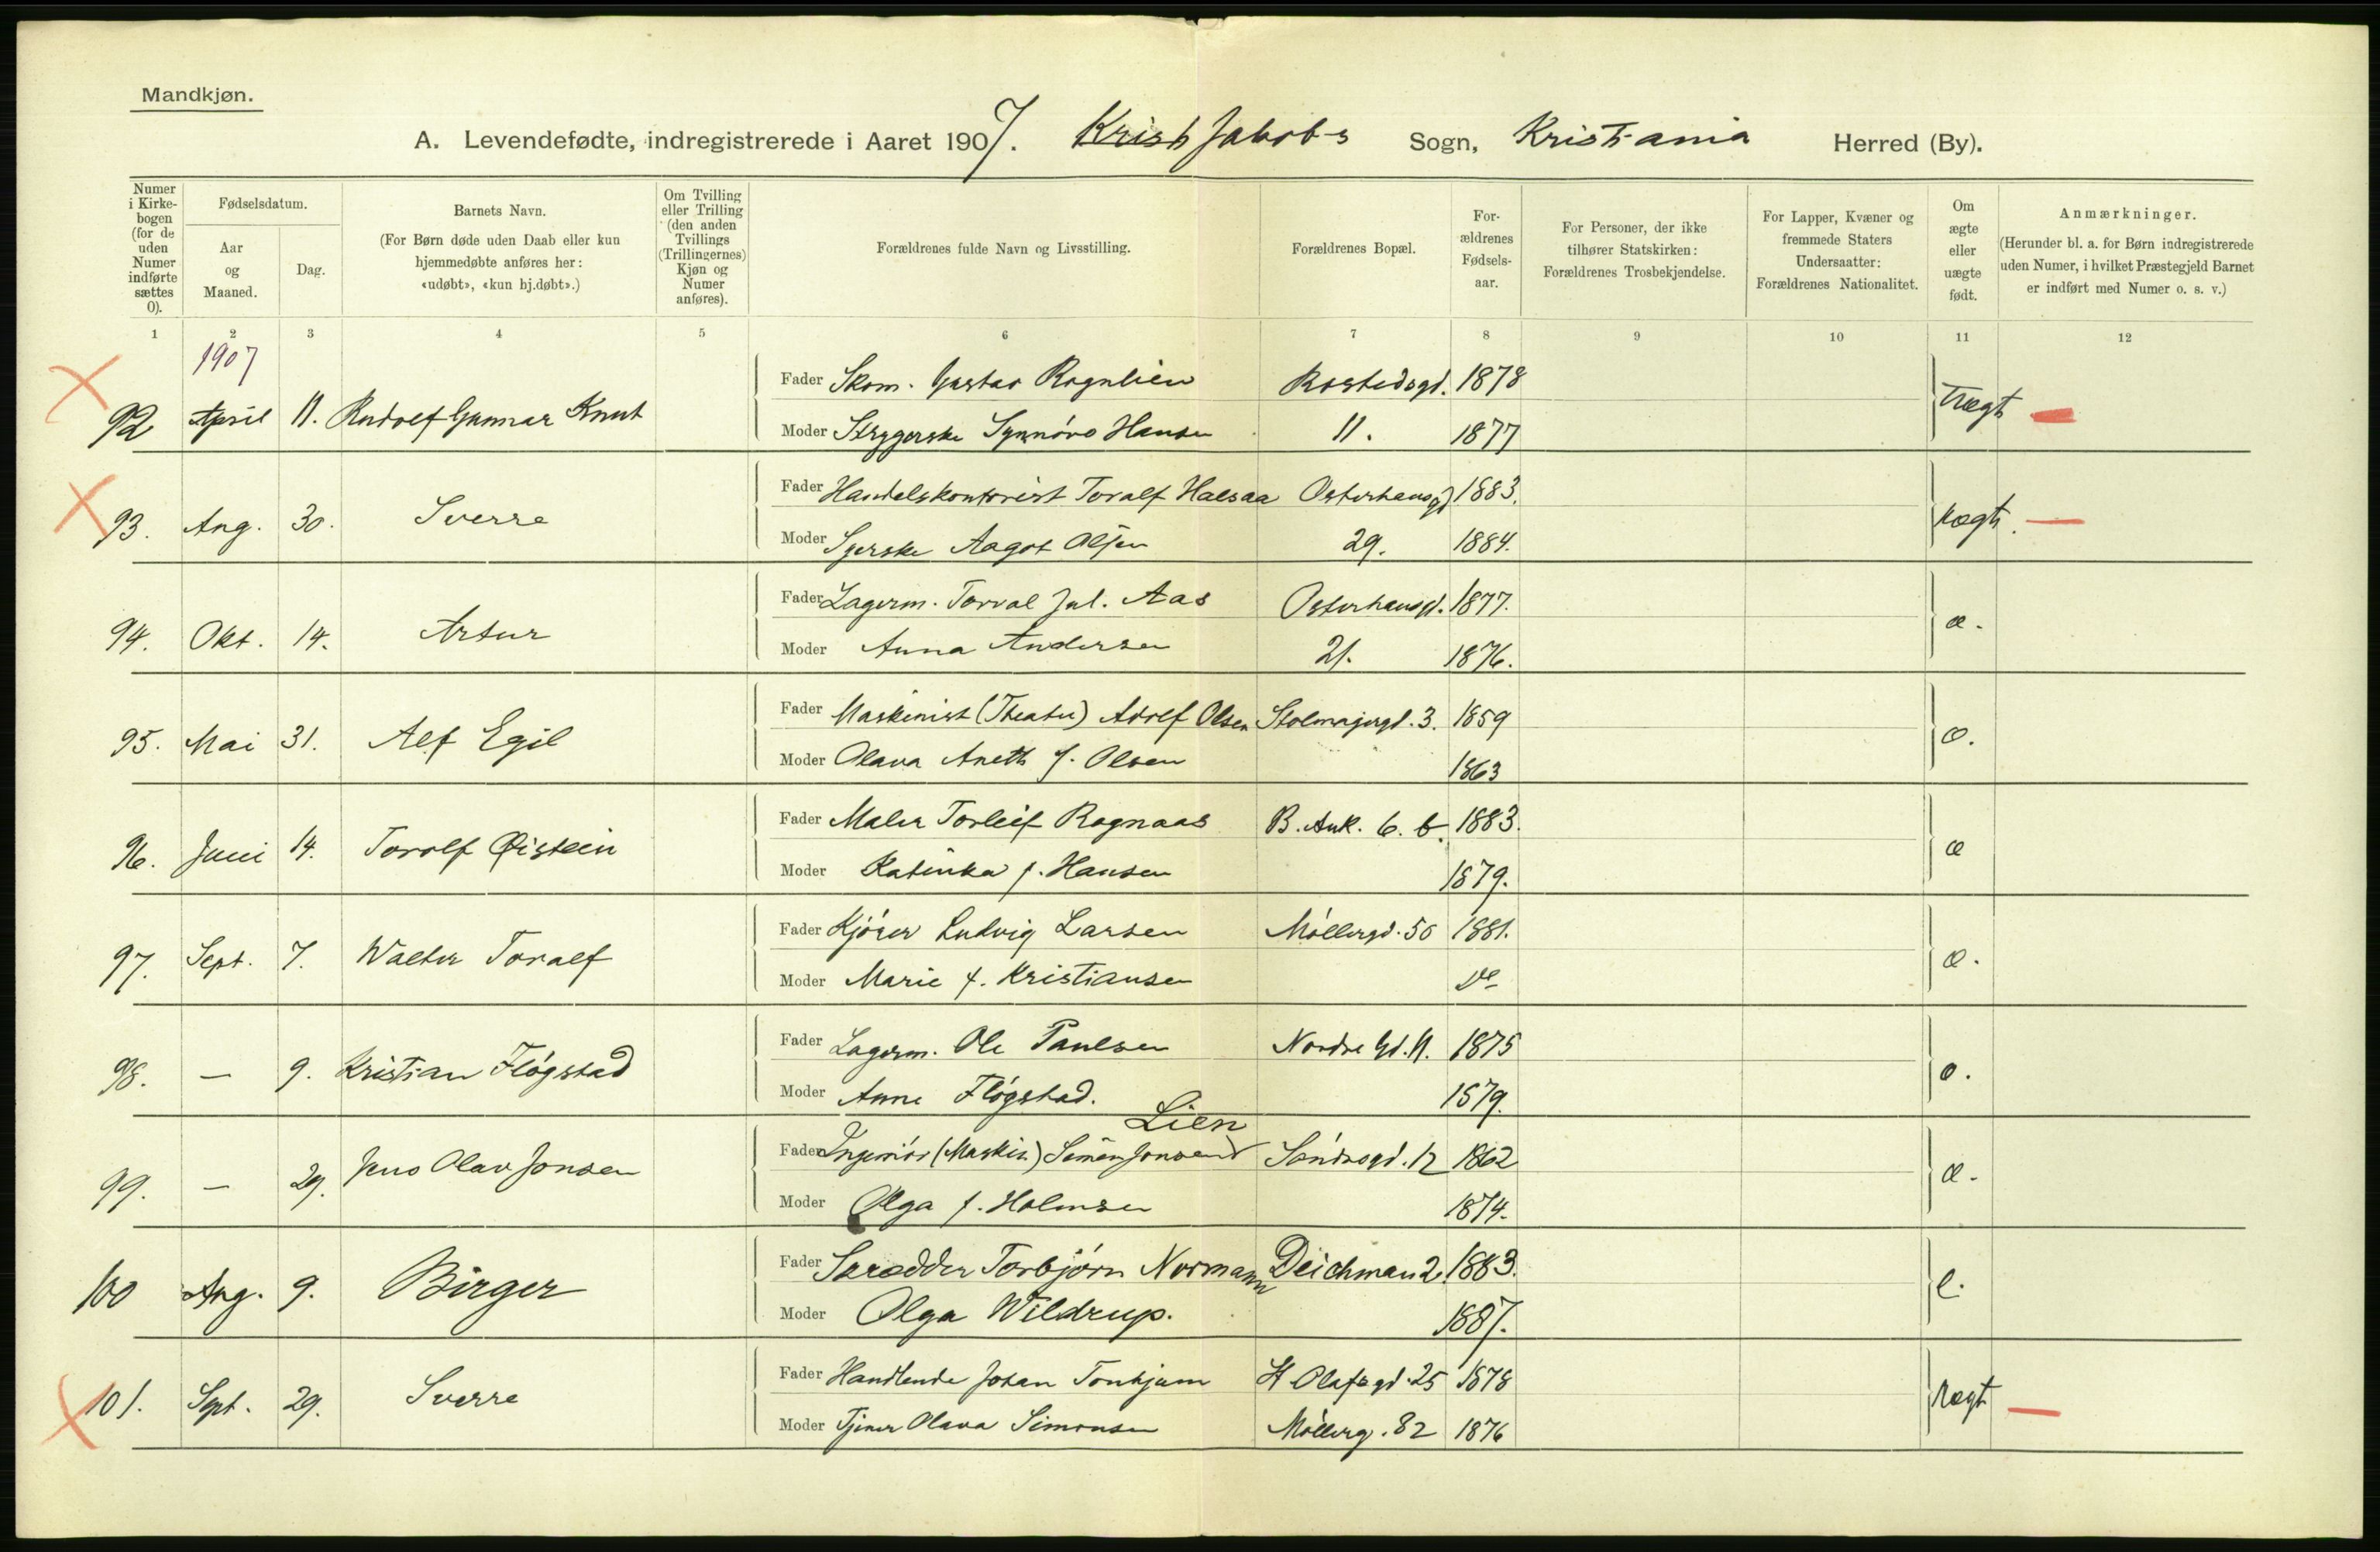 Mandkjøn.
A. Levendefødte, indregistrerede i Aaret 1907. Krist Jakobs Sogn, Kristiania Herred (By).
Numer i Kirkebogen (for de uden Numer indførte sættes 0).
Fødselsdatum.
Aar og Maaned.
Dag.
Barnets Navn.
(For Børn døde uden Daab eller kun hjemmedøbte anføres her: «udøbt», «kun hj.døbt».)
Om Tvilling eller Trilling (den anden Tvillings (Trillingernes) Kjøn og Numer anføres).
Forældrenes fulde Navn og Livsstilling.
Forældrenes Bopæl.
Forældrenes Fødselsaar.
For Personer, der ikke tilhører Statskirken: Forældrenes Trosbekjendelse.
For Lapper, Kvæner og fremmede Staters Undersaatter: Forældrenes Nationalitet.
Om ægte eller uægte født.
Anmærkninger.
(Herunder bl. a. for Børn indregistrerede uden Numer, i hvilket Præstegjeld Barnet er indført med Numer o. s. v.)
1 2 3 4 5 6 7 8 9 10 11 12
1907
Fader Skom. Gustav Rognlien Rostedsgd. 1878
92 April 11. Rudolf Gunnar Knut uægt
Moder Strygerske Synnöve Hansen 11. 1877
Fader Handelskontorist Toralf Halsaa Osterhausgd 1883.
93. Aug. 30. Sverre uægt.
Moder Syerske Aagot Olsen 29. 1884.
Fader Lagerm. Torval Jul. Aas Osterhausgd. 1877.
94. Okt. 14. Artur æ.
Moder Anna Andersen 21. 1876.
Fader Maskinist (Theater) Adolf Olsen Stolmagergd. 3. 1859
95. Mai 31. Alf Egil æ.
Moder Olava Aneth f. Olsen 1863
Fader Maler Torleif Rognaas B. Ank. 6. b. 1883.
96. Juni 14. Torolf Øistein æ
Moder Katinka f. Hansen 1879.
Fader Kjörer Ludvig Larsen Möllergd. 50 1881.
97. Sept. 7. Walter Toralf æ.
Moder Marie f. Kristiansen do
Fader Lagerm. Ole Paulsen Nordre Gd. 11. 1875
98. — 9. Kristian Flögstad æ.
Moder Anne Flögstad. 1879.
Lien
Fader Ingeniör (Maskin) Simen Jonsen Söndregd. 12 1862
99. — 29. Jens Olav Jonsen æ.
Moder Olga f. Holmsen 1874.
Fader Skrædder Torbjörn Normann Deichman 2. 1883.
100 Aug. 9. Birger e.
Moder Olga Wildrup. 1887.
Fader Handlende Johan Tonhjum St Olafsgd. 25 1878
101. Sept. 29. Sverre uægt
Moder Tjener Olava Simonsen Möllerg. 82 1876